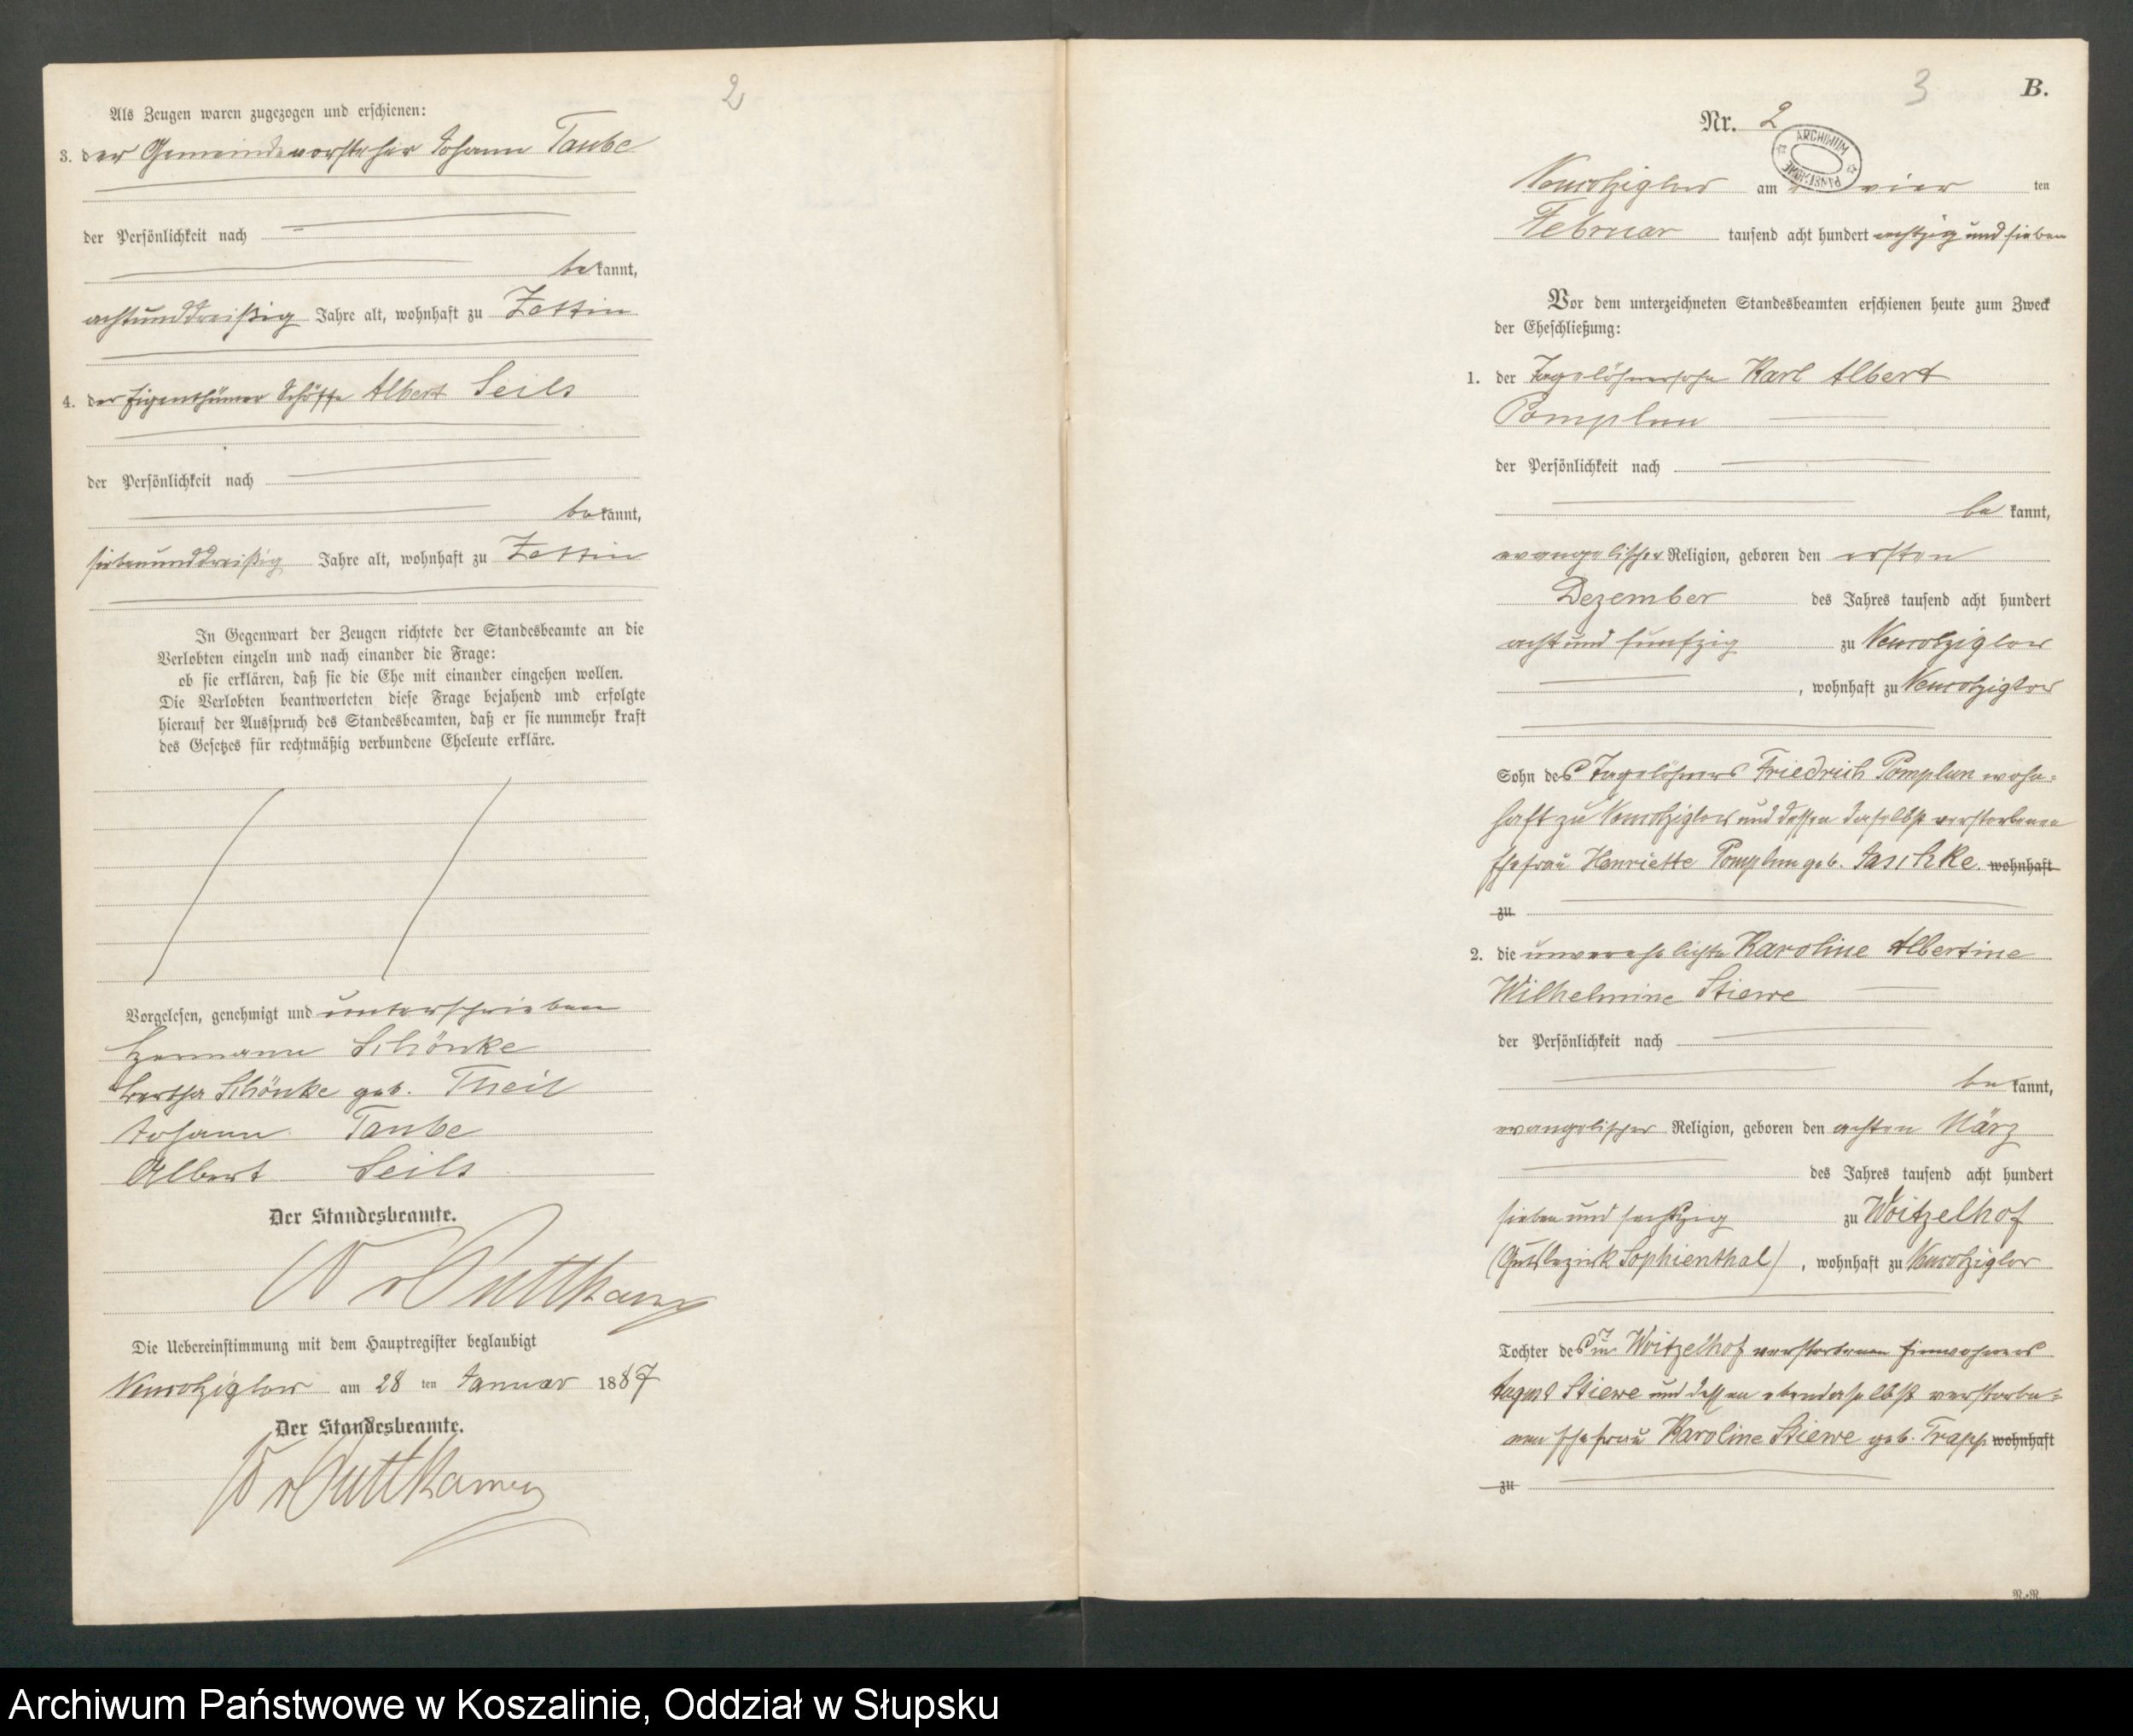 2
Als Zeugen waren zugezogen und erschienen:
3. der Gemeindevorsteher Johann Taube
der Persönlichkeit nach
bekannt,
achtunddreißig Jahre alt, wohnhaft zu Zettin
4. der Eigenthümer Schöffe Albert Seils
der Persönlichkeit nach
bekannt,
siebenunddreißig Jahre alt, wohnhaft zu Zettin
In Gegenwart der Zeugen richtete der Standesbeamte an die
Verlobten einzeln und nach einander die Frage:
ob sie erklären, daß sie die Ehe mit einander eingehen wollen.
Die Verlobten beantworteten diese Frage bejahend und erfolgte
hierauf der Ausspruch des Standesbeamten, daß er sie nunmehr kraft
des Gesetzes für rechtmäßig verbundene Eheleute erkläre.
Vorgelesen, genehmigt und unterschrieben
Hermann Schönke
Bertha Schönke geb. Theil
Johann Taube
Albert Seils
Der Standesbeamte.
W v Puttkamer
Die Uebereinstimmung mit dem Hauptregister beglaubigt
Neuwotziglow am 28 ten Januar 1887
Der Standesbeamte.
W v Puttkamer
3
B.
Nr. 2
ARCHIWUM PAŃSTWOWE
Neuwotziglow am vier ten
Februar tausend acht hundert achtzig und sieben
Vor dem unterzeichneten Standesbeamten erschienen heute zum Zweck
der Eheschließung:
1. der Tagelöhnersohn Karl Albert
Pomplun
der Persönlichkeit nach
bekannt,
evangelischer Religion, geboren den ersten
Dezember des Jahres tausend acht hundert
acht und funfzig zu Neuwotziglow
, wohnhaft zu Neuwotziglow
Sohn des Tagelöhners Friedrich Pomplun wohn=
haft zu Neuwotziglow und dessen daselbst verstorbenen
Ehefrau Henriette Pomplun geb. Jaschke. wohnhaft
zu
2. die unverehelichte Karoline Albertine
Wilhelmine Stiewe
der Persönlichkeit nach
bekannt,
evangelischer Religion, geboren den achten März
des Jahres tausend acht hundert
sieben und sechszig zu Woitzelhof
(Gutsbezirk Sophienthal) , wohnhaft zu Neuwotziglow
Tochter des in Woitzelhof verstorbenen Einwohners
August Stiewe und dessen ebendaselbst verstorbe=
nen Ehefrau Karoline Stiewe geb. Trapp wohnhaft
zu
Archiwum Państwowe w Koszalinie, Oddział w Słupsku